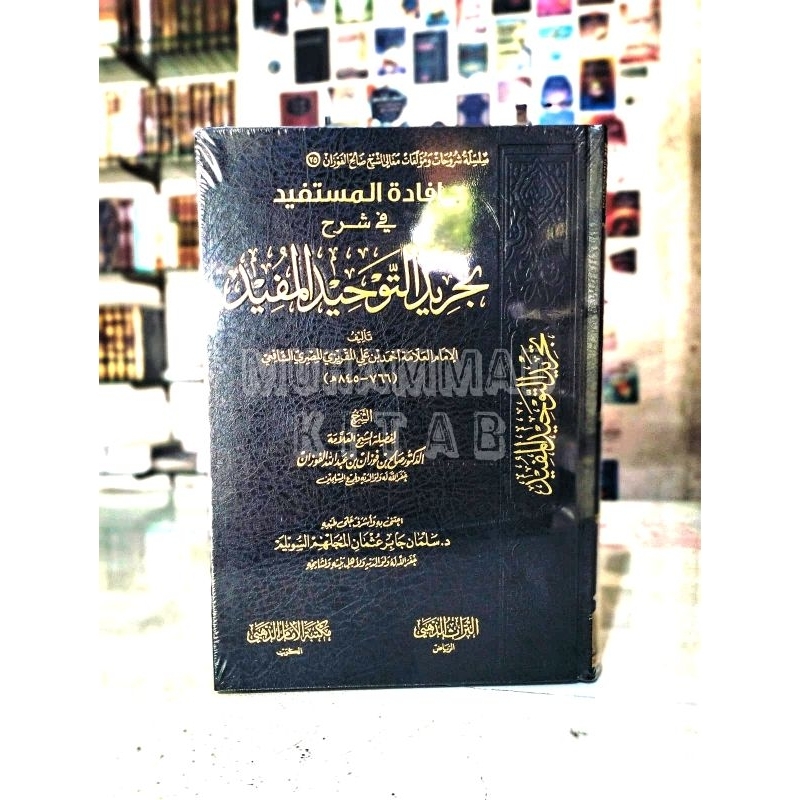 سلسلة شروحات ومؤلفات معالي الشيخ صالح الفوزان ٢٥
إفادة المستفيد
في شرح
تجريد التوحيد المفيد
تأليف
الإمام العلامة أحمد بن علي المقريزي المصري الشافعي
(٧٦٦-٨٤٥هـ)
الشرح
لفضيلة الشيخ العلامة
الدكتور صالح بن فوزان بن عبد الله الفوزان
غفر الله له ولوالديه ولجميع المسلمين
اعتنى به وأشرف على طبعه
د. سلمان جابر عثمان المجلهم السويلم
غفر الله له ولوالديه ولأهل بيته ولمشايخه
التراث الذهبي
الرياض
مكتبة الإمام الذهبي
الكويت
تجريد التوحيد المفيد
MUHAMMAD
KITAB